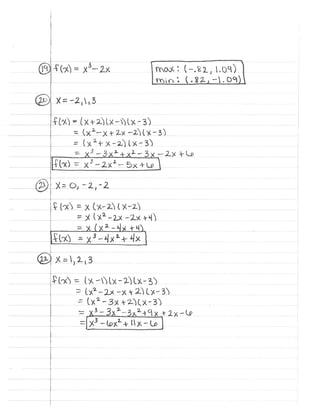 (19) f(x) = x³-2x
max: (-.82, 1.09)
min: (.82, -1.09)
(20) x = -2, 1, 3
f(x) = (x+2)(x-1)(x-3)
= (x²-x+2x-2)(x-3)
= (x²+x-2)(x-3)
= x³-3x²+x²-3x-2x+6
f(x) = x³-2x²-5x+6
(21) x = 0, -2, -2
f(x) = x(x-2)(x-2)
= x(x²-2x-2x+4)
= x(x²-4x+4)
f(x) = x³-4x²+4x
(22) x = 1, 2, 3
f(x) = (x-1)(x-2)(x-3)
= (x²-2x-x+2)(x-3)
= (x²-3x+2)(x-3)
= x³-3x²-3x²+9x+2x-6
= x³-6x²+11x-6